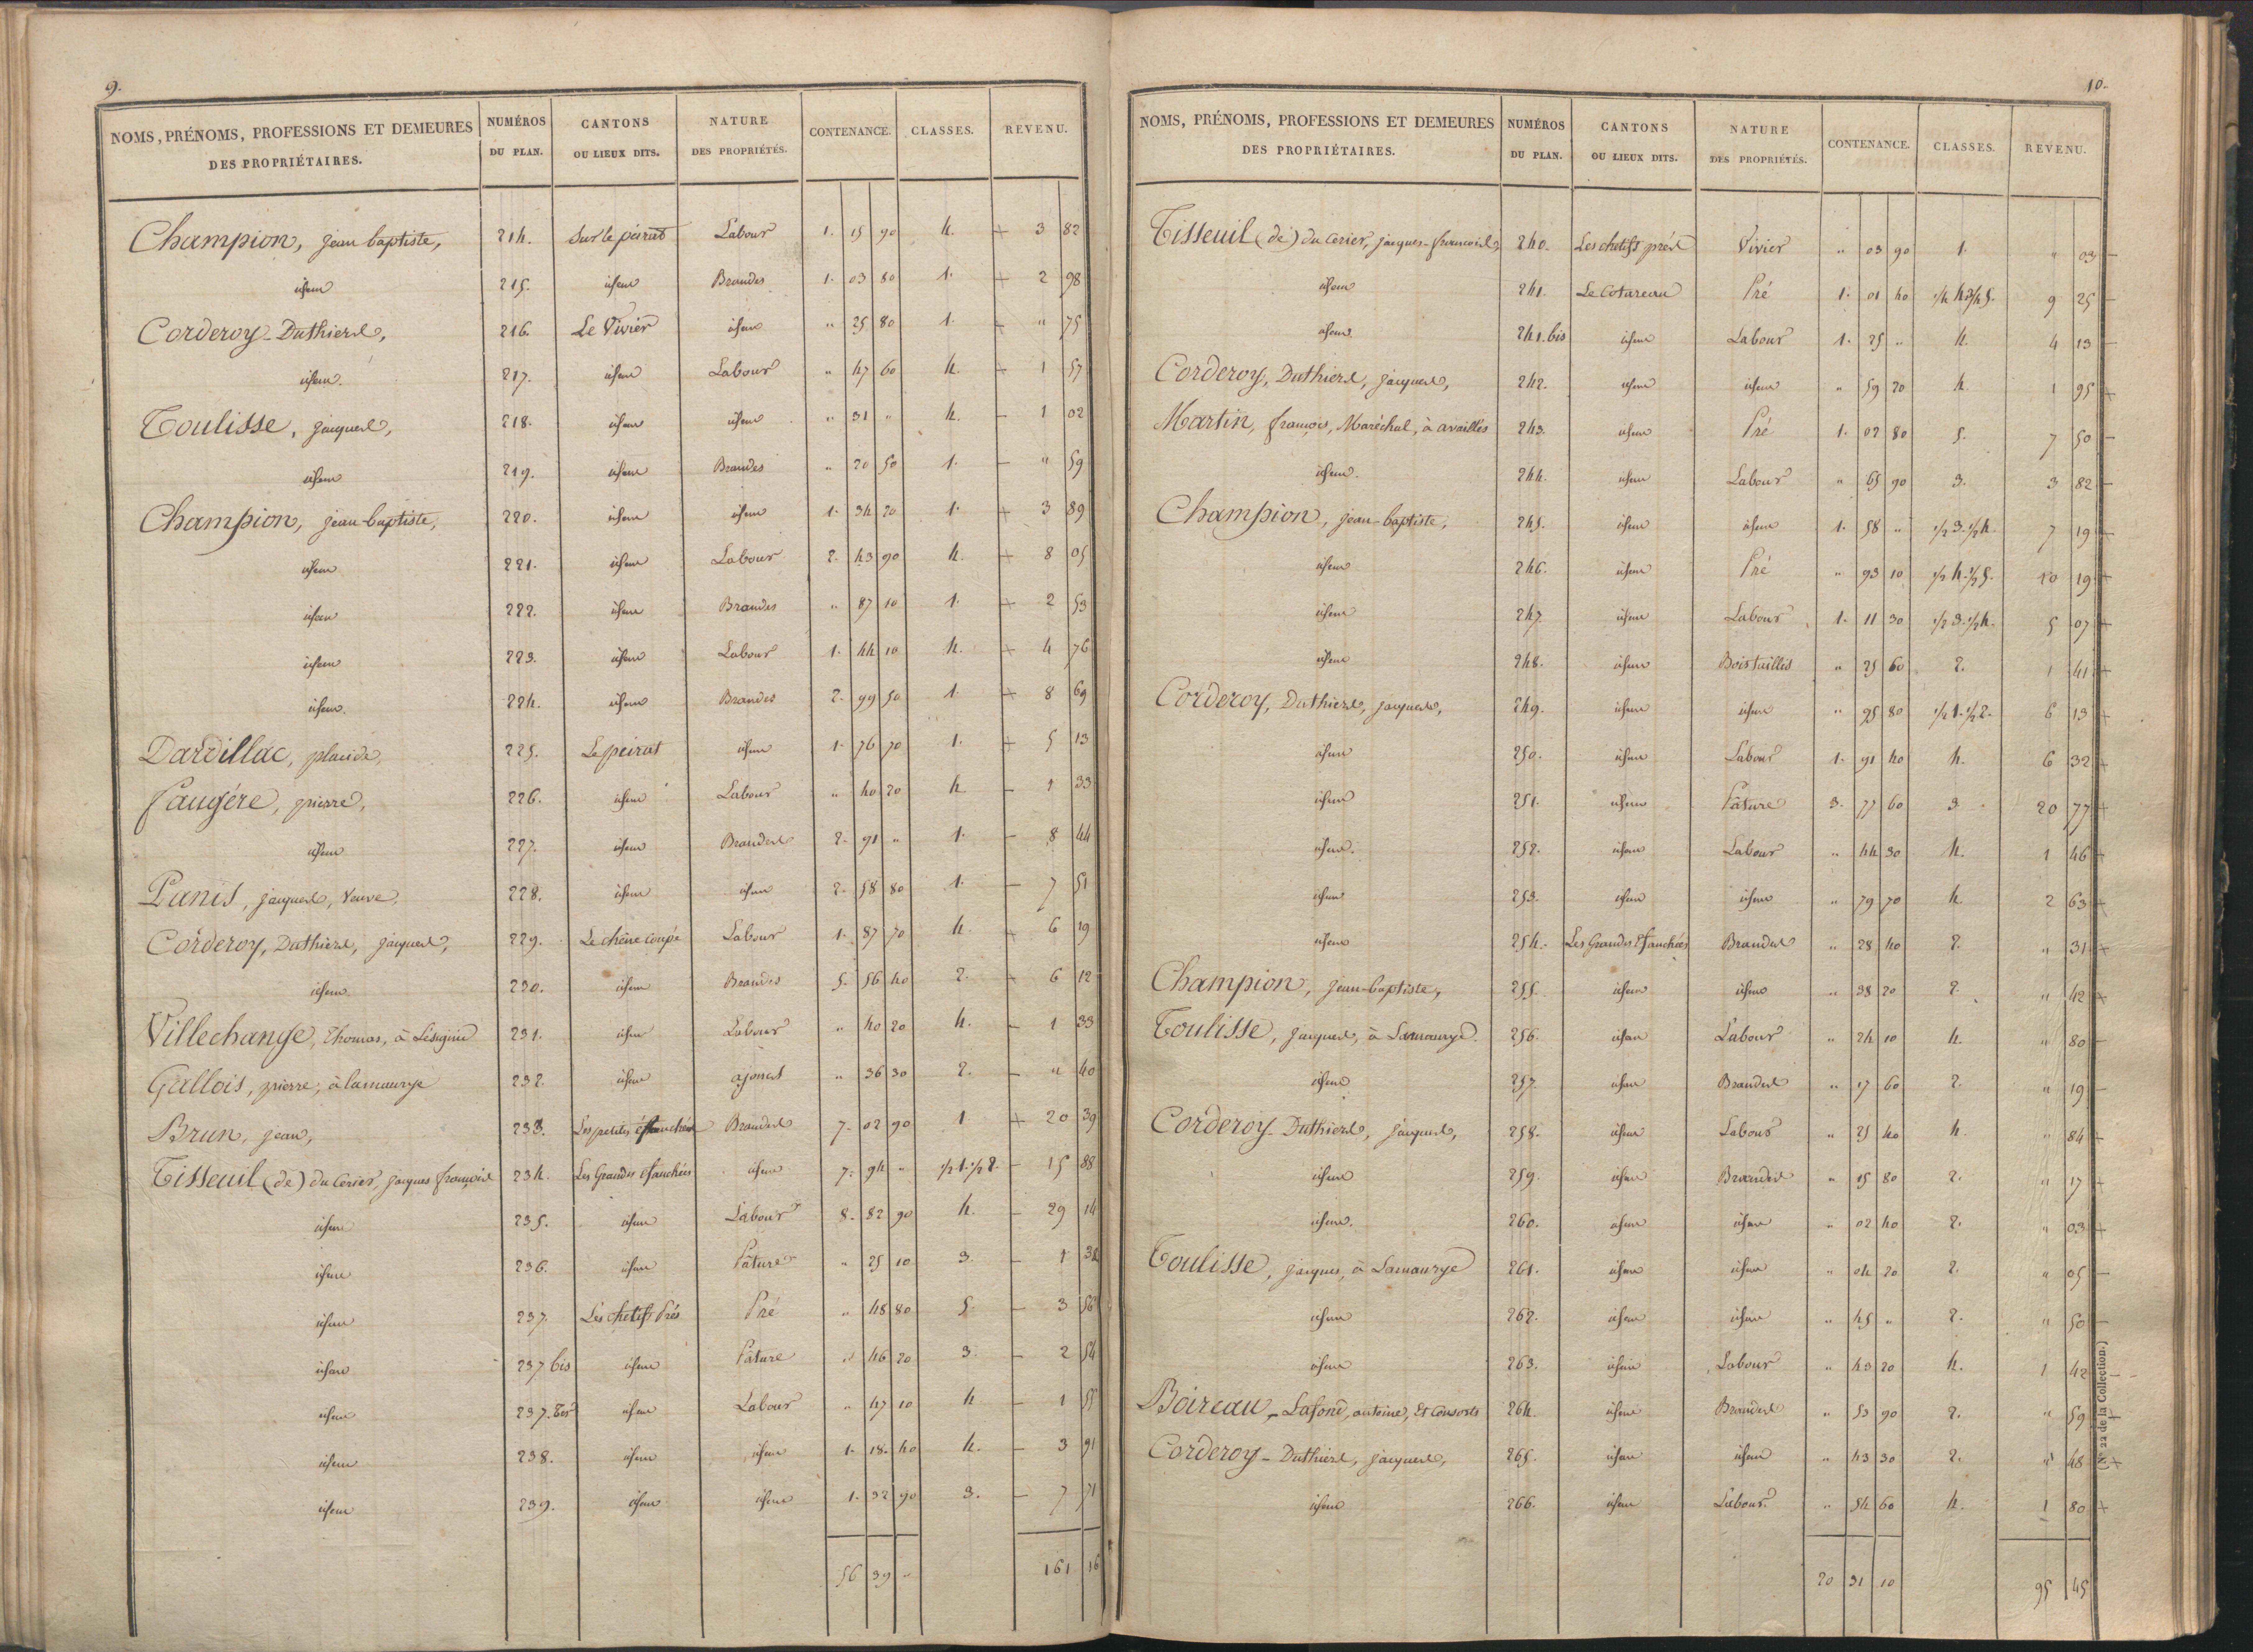 9.
NOMS, PRÉNOMS, PROFESSIONS ET DEMEURES DES PROPRIÉTAIRES. NUMÉROS DU PLAN. CANTONS OU LIEUX DITS. NATURE DES PROPRIÉTÉS. CONTENANCE. CLASSES. REVENU.
Champion, jean baptiste, 214. Sur le peirat Labour 1. 15 90 4. + 3 82
idem 215. idem Brandes 1. 03 80 1. + 2 98
Corderoy-Duthiers, 216. Le Vivier idem " 25 80 1. + " 75
idem. 217. idem Labour " 47 60 4. + 1 57
Toulisse, jacques, 218. idem idem " 31 " 4. - 1 02
idem 219. idem Brandes " 20 50 1. - " 59
Champion, jean-baptiste, 220. idem idem 1. 34 20 1. + 3 89
idem 221. idem Labour 2. 43 90 4. + 8 05
idem 222. idem Brandes " 87 10 1. + 2 53
idem 223. idem Labour 1. 44 10 4. + 4 76
idem. 224. idem Brandes 2. 99 50 1. + 8 69
Dardillac, placide, 225. Le peirat idem 1. 76 70 1. + 5 13
faugére, pierre, 226. idem Labour " 40 20 4 - 1 33
idem 227. idem Brandes 2. 91 " 1. - 8 44
Panis, jacques, Veuve. 228. idem idem 2. 58 80 1. - 7 51
Corderoy, Duthiers, jacques, 229. Le chêne coupé Labour 1. 87 70 4. + 6 19
idem 230. idem Brandes 5. 56 40 2. + 6 12
Villechange, Thomas, à Lésignie 231. idem Labour " 40 20 4. - 1 33
Gallois, pierre, à lamaurye 232. idem ajoncs " 36 30 2. - " 40
Brun, jean, 233. Les petites éfauchées Brandes 7. 02 90 1 + 20 39
Tisseuil (de) du Cerier, jacques françois 234. Les Grandes éfauchées idem 7. 94 " 1/2 1. 1/2 2. - 15 88
idem 235. idem Labour 8. 82 90 4. - 29 14
idem 236. idem Pâture " 25 10 3. - 1 38
idem 237. Les chetifs Prés Pré " 48 80 5. - 3 56
idem 237 bis idem Pâture " 46 20 3. - 2 54
idem 237. Ter idem Labour " 47 10 4 - 1 55
idem 238. idem idem 1. 18. 40 4. - 3 91
idem 239. idem idem 1. 32 90 3. - 7 71
56 39 " 161 16
10.
NOMS, PRÉNOMS, PROFESSIONS ET DEMEURES DES PROPRIÉTAIRES. NUMÉROS DU PLAN. CANTONS OU LIEUX DITS. NATURE DES PROPRIÉTÉS. CONTENANCE. CLASSES. REVENU.
Tisseuil (de) du Cerier, jacques-françois, 240. Les chetifs prés Vivier " 03 90 1. " 03 -
idem 241. Le Cotareau Pré 1. 01 40 1/4 4 3/4 5. 9 25 -
idem. 241. bis idem Labour 1. 25 " 4. 4 13 -
Corderoy, Duthiers, jacques, 242. idem idem " 59 20 4. 1 95 +
Martin, françois, Maréchal, à availles 243. idem Pré 1. 02 80 5. 7 50 -
idem. 244. idem Labour " 65 90 3. 3 82 -
Champion, jean-baptiste, 245. idem idem 1. 58 " 1/2 3. 1/2 4. 7 19 +
idem 246. idem Pré " 93 10 1/2 4. 1/2 5. 10 19 +
idem 247. idem Labour 1. 11 30 1/2 3. 1/2 4. 5 07 +
idem 248. idem Bois taillis " 25 60 2. 1 41 +
Corderoy, Duthiers, jacques, 249. idem idem " 95 80 1/2 1. 1/2 2. 6 13 +
idem 250. idem Labour 1. 91 40 4. 6 32 +
idem 251. idem Pâture 3. 77 60 3. 20 77 +
idem. 252. idem Labour " 44 30 4. 1 46 +
idem 253. idem idem " 79 70 4. 2 63 +
idem 254. Les Grandes Efauchées Brandes " 28 40 2. " 31 +
Champion, jean-baptiste, 255. idem idem " 38 20 2. " 42 +
Toulisse, jacques, à Lamaurye. 256. idem Labour " 24 10 4. " 80 -
idem 257. idem Brandes " 17 60 2. " 19 -
Corderoy-Duthiers, jacques, 258. idem Labour " 25 40 4. " 84 +
idem 259. idem Brandes " 15 80 2. " 17 +
idem. 260. idem idem " 02 40 2. " 03 +
Toulisse, jacques, à Lamaurye 261. idem idem " 04 20 2. " 05 -
idem 262. idem idem " 45 " 2. " 50 -
idem 263. idem Labour " 43 20 4. 1 42 -
Boireau-Lafond, antoine, Et Consorts 264. idem Brandes " 53 90 2. " 59 +
Corderoy-Duthiers, jacques, 265. idem idem " 43 30 2. " 48 +
idem 266. idem Labour " 54 60 4. 1 80 +
20 31 10 95 45
(N° 22 de la Collection.)